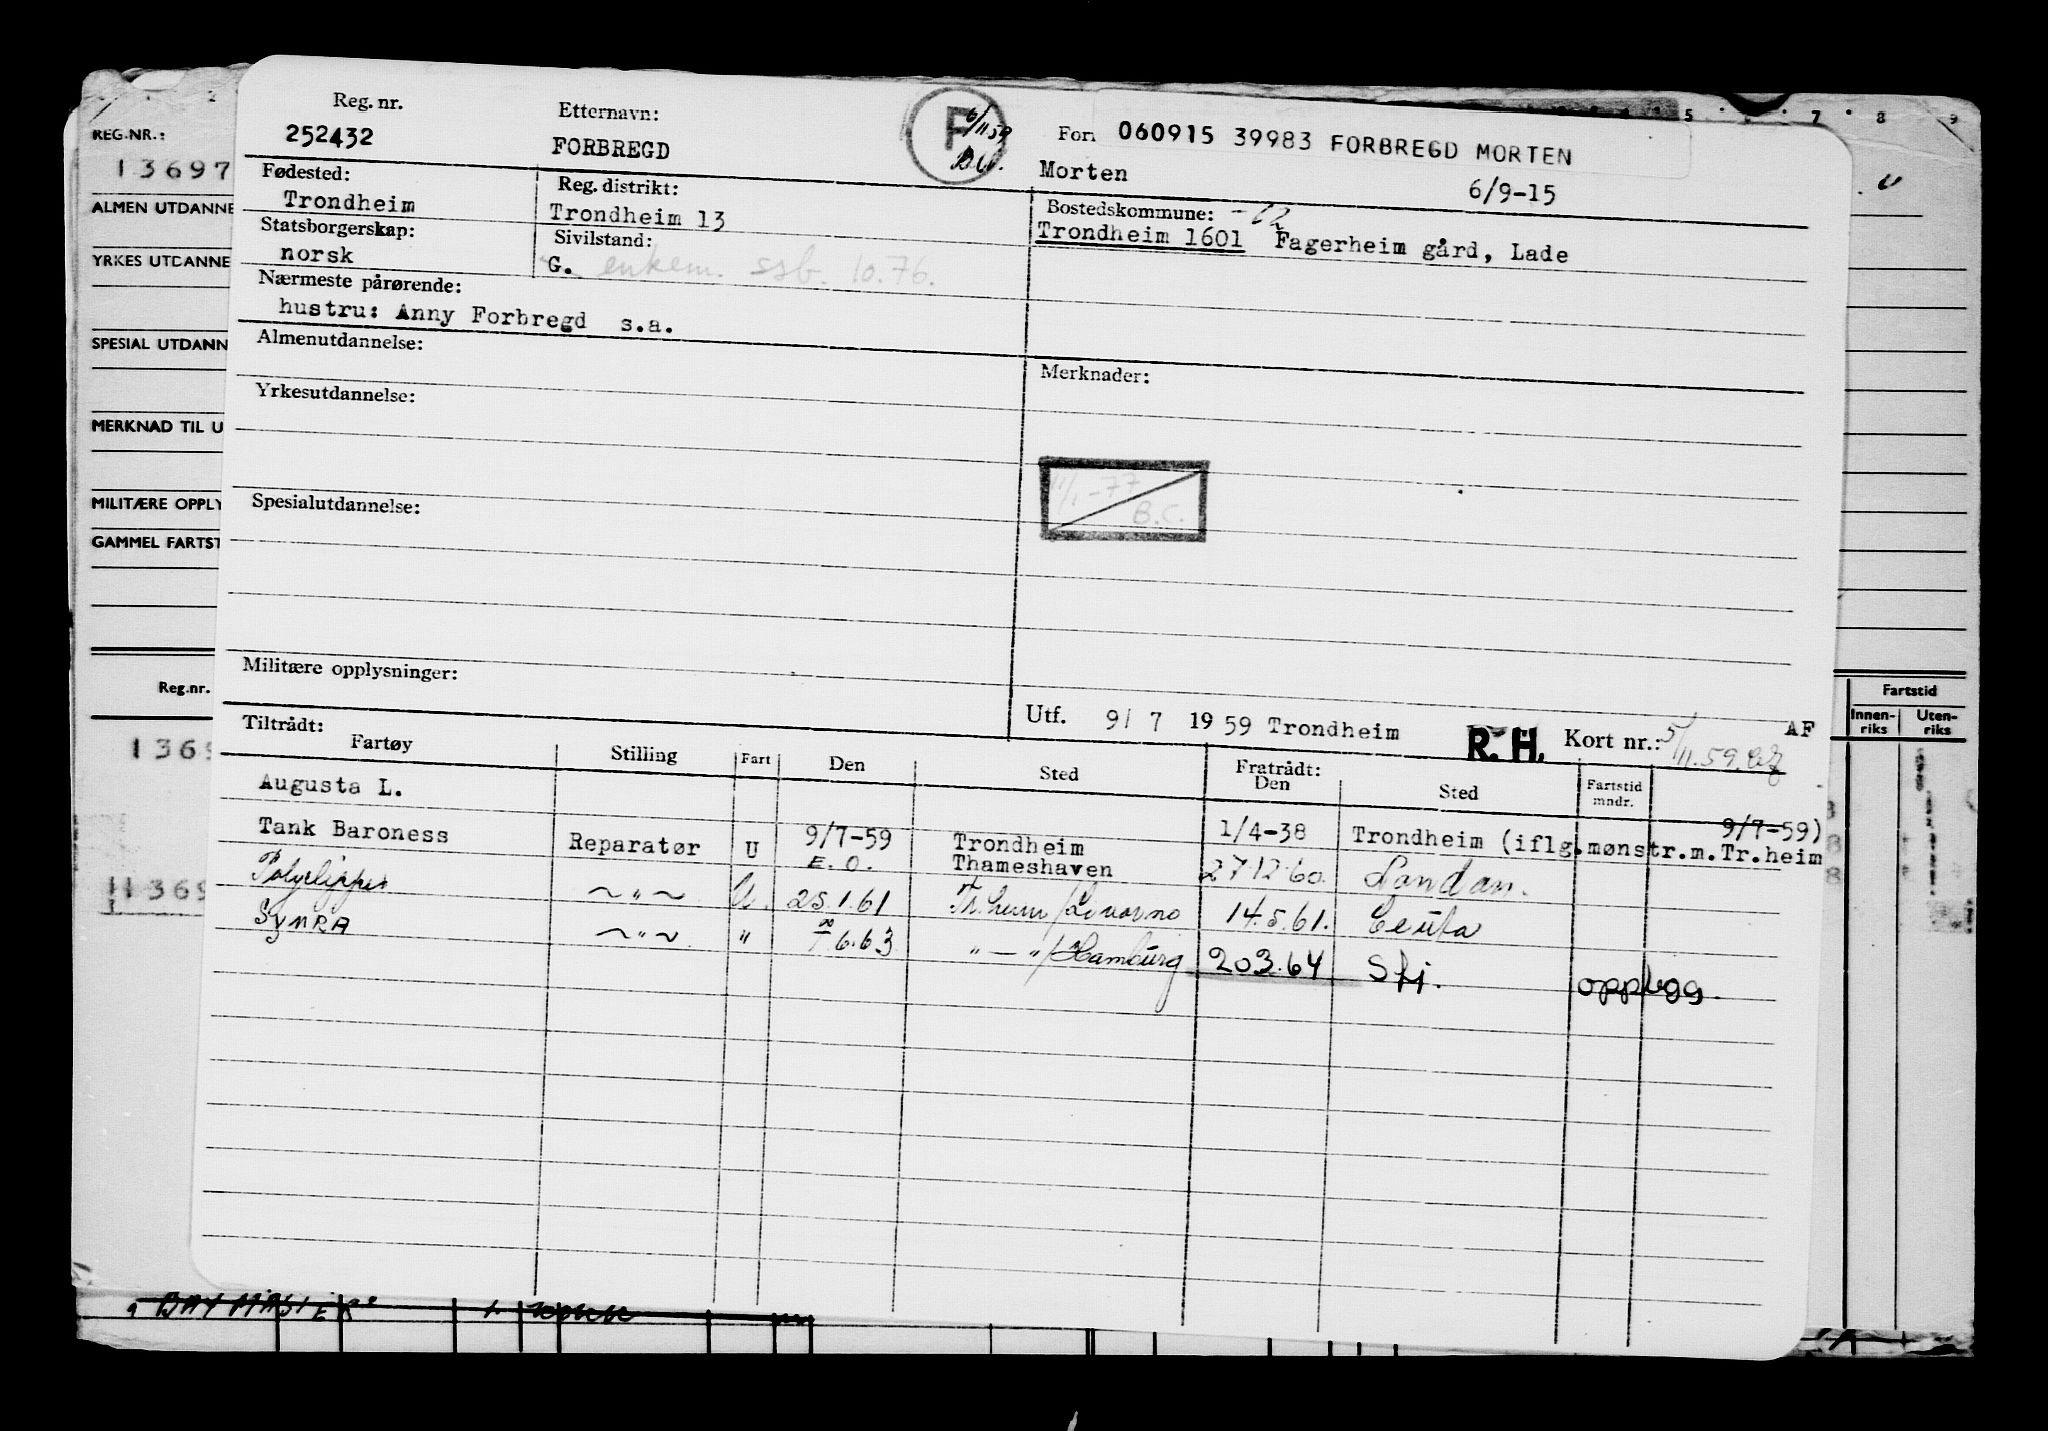 5 7 8 9
REG.NR.:
13697
ALMEN UTDANNE
YRKES UTDANNE
SPESIAL UTDANN
MERKNAD TIL U
MILITÆRE OPPLY
GAMMEL FARTST
Reg.nr.
1369
11369
Reg. nr. Etternavn: F 6/11 59 For 060915 39983 FORBREGD MORTEN
252432 FORBREGD Morten 6/9-15
Fødested: Reg. distrikt: Bostedskommune: -62
Trondheim Trondheim 13 Trondheim 1601 Fagerheim gård, Lade
Statsborgerskap: Sivilstand:
norsk G. enkem. ssb. 10.76.
Nærmeste pårørende:
hustru: Anny Forbregd s.a.
Almenutdannelse: Merknader:
Yrkesutdannelse:
11/1-77
B.C.
Spesialutdannelse:
Militære opplysninger:
Utf. 9/ 7 19 59 Trondheim R.H. Kort nr.: 5/11.59. AF
Tiltrådt: Fratrådt:
Fartøy Stilling Fart Den Sted Den Sted Fartstid mndr.
Augusta L. 1/4-38 Trondheim (iflg.mønstr.m.Tr.heim 9/7-59)
Tank Baroness Reparatør U 9/7-59 Trondheim
E.O. Thameshaven 27.12.60. London.
Polyclipper ~ " ~ U. 25.1.61 Tr.heim/Livorno 14.5.61. Ceuta
SYMRA ~ " ~ " 6.63 " — "/Hamburg 203.64 Sfj. oppbygg.
Fartstid
Innen-riks Uten-riks